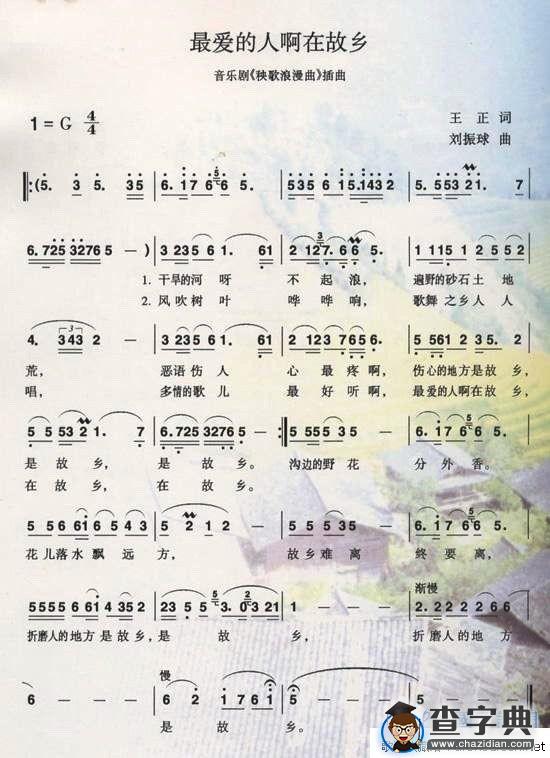 最爱的人啊在故乡
音乐剧《秧歌浪漫曲》插曲
1=G 4/4
王正 词
刘振球 曲
(5. 3 5. 35 6. 17 6 5 6 5. 535 6 15.1432 5. 553 21. 7
6.725 32765 - ) 3 235 6 1. 61 2 127. 6 3 6 5. 1 1115 1 2 55 2
1. 干旱的河 呀 不 起 浪, 遍野的砂石土 地
2. 风吹树 叶 哗 哗 响, 歌舞 之 乡 人 人
4. 343 2 - 3 3 235 6 1. 61 2 123 7656. 5 2 235.3 2 1 2
荒, 恶语 伤 人 心 最 疼 啊, 伤心的地方是故 乡,
唱, 多情 的 歌 儿 最 好 听 啊, 最爱的人啊在故 乡,
5 5 53 2 1. 7 6.725 3276 5 - 5 555 5 35 6. 17 6 5 5
是 故 乡, 是 故 乡。 沟边的野 花 分 外 香。
在 故 乡, 在 故 乡。
5 56 61 6543 5 5 - - 5 555 35 6. 17 6 5 5
花 儿落 水 飘 远 方, 故 乡 难 离 终 要 离,
渐慢
5555 5 61 4 3 5 2 23 5 5 2 3. 0 3 21 1 - - - 2. 2 2 2 2 6
折磨人的 地 方 是 故 乡, 是 故 乡, 折磨人的 地 方
慢
6 - - - 6 6 2 1 7 6 1 5 - - - 5
是 故 乡。
查字典
www.chazidian.com